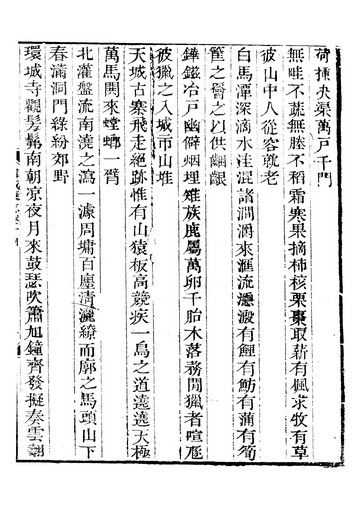 荷插決渠萬戶千門
無畦不蔬無塍不稻霜寒果摘柿核栗棗取薪有佩求牧有草
彼山中人從容就老
白馬潭深滴水洼混諸澗溯來滙流瀠漩有鯉有魴有蒲有筍
筐之筥之以供
鏵鎡冶戶幽僻烟埋雉族鹿屬萬卵千胎木落務閒獵者喧豗
彼獵之入城市山堆
天城古寨飛走絕跡惟有山猿板高競疾一鳥之道遶遶天極
萬馬開來螳螂一臂
北灌盤流南澆之瀉一濠周墉百廛清灑繚而廓之馬頭山下
春滿洞門綠紛郊野
環城寺觀髣髴南朝凉夜月來鼓瑟吹簫旭鐘齊發擬奏雲翺